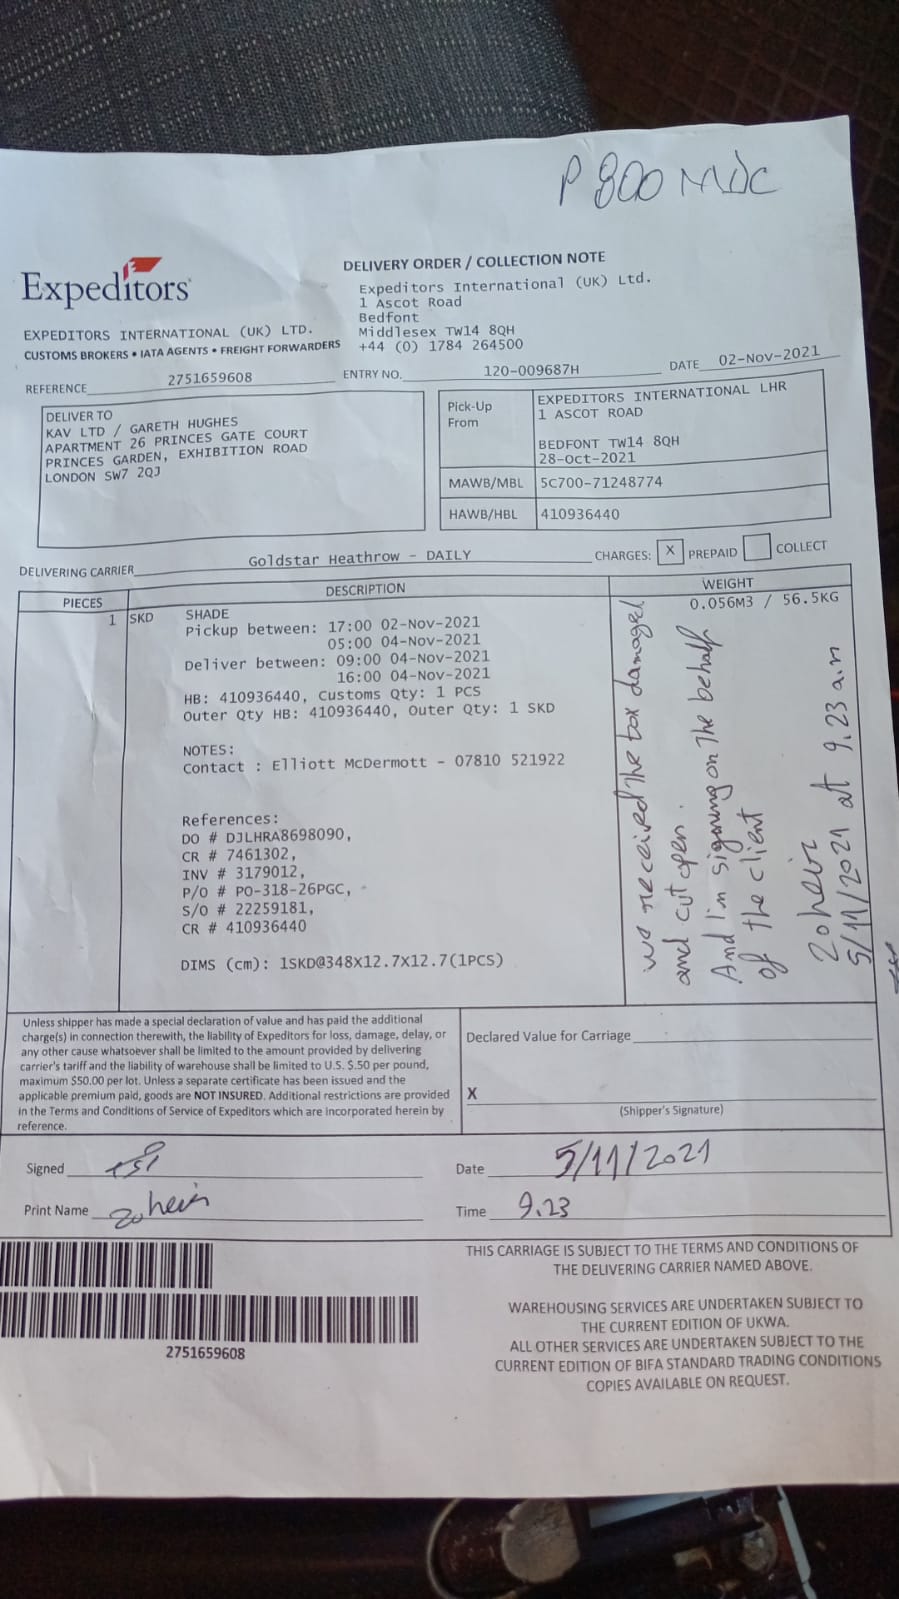 P 800 MDC
Expeditors
EXPEDITORS INTERNATIONAL (UK) LTD.
CUSTOMS BROKERS • IATA AGENTS • FREIGHT FORWARDERS
DELIVERY ORDER / COLLECTION NOTE
Expeditors International (UK) Ltd.
1 Ascot Road
Bedfont
Middlesex TW14 8QH
+44 (0) 1784 264500
REFERENCE 2751659608 ENTRY NO. 120-009687H DATE 02-Nov-2021
DELIVER TO
KAV LTD / GARETH HUGHES
APARTMENT 26 PRINCES GATE COURT
PRINCES GARDEN, EXHIBITION ROAD
LONDON SW7 2QJ
Pick-Up From
EXPEDITORS INTERNATIONAL LHR
1 ASCOT ROAD
BEDFONT TW14 8QH
28-Oct-2021
MAWB/MBL 5C700-71248774
HAWB/HBL 410936440
DELIVERING CARRIER Goldstar Heathrow - DAILY CHARGES: X PREPAID COLLECT
PIECES DESCRIPTION WEIGHT
1 SKD SHADE 0.056M3 / 56.5KG
Pickup between: 17:00 02-Nov-2021
05:00 04-Nov-2021
Deliver between: 09:00 04-Nov-2021
16:00 04-Nov-2021
HB: 410936440, Customs Qty: 1 PCS
Outer Qty HB: 410936440, Outer Qty: 1 SKD
NOTES:
Contact : Elliott McDermott - 07810 521922
References:
DO # DJLHRA8698090,
CR # 7461302,
INV # 3179012,
P/O # PO-318-26PGC,
S/O # 22259181,
CR # 410936440
DIMS (cm): 1SKD@348X12.7X12.7(1PCS)
we received the box damaged
and cut open.
And I'm signing on the behalf
of the client
zoheir
5/11/2021 at 9.23 a.m
Unless shipper has made a special declaration of value and has paid the additional
charge(s) in connection therewith, the liability of Expeditors for loss, damage, delay, or
any other cause whatsoever shall be limited to the amount provided by delivering
carrier's tariff and the liability of warehouse shall be limited to U.S. $.50 per pound,
maximum $50.00 per lot. Unless a separate certificate has been issued and the
applicable premium paid, goods are NOT INSURED. Additional restrictions are provided
in the Terms and Conditions of Service of Expeditors which are incorporated herein by
reference.
Declared Value for Carriage
X
(Shipper's Signature)
Signed
Date 5/11/2021
Print Name zoheir
Time 9.23
2751659608
THIS CARRIAGE IS SUBJECT TO THE TERMS AND CONDITIONS OF
THE DELIVERING CARRIER NAMED ABOVE.
WAREHOUSING SERVICES ARE UNDERTAKEN SUBJECT TO
THE CURRENT EDITION OF UKWA.
ALL OTHER SERVICES ARE UNDERTAKEN SUBJECT TO THE
CURRENT EDITION OF BIFA STANDARD TRADING CONDITIONS
COPIES AVAILABLE ON REQUEST.